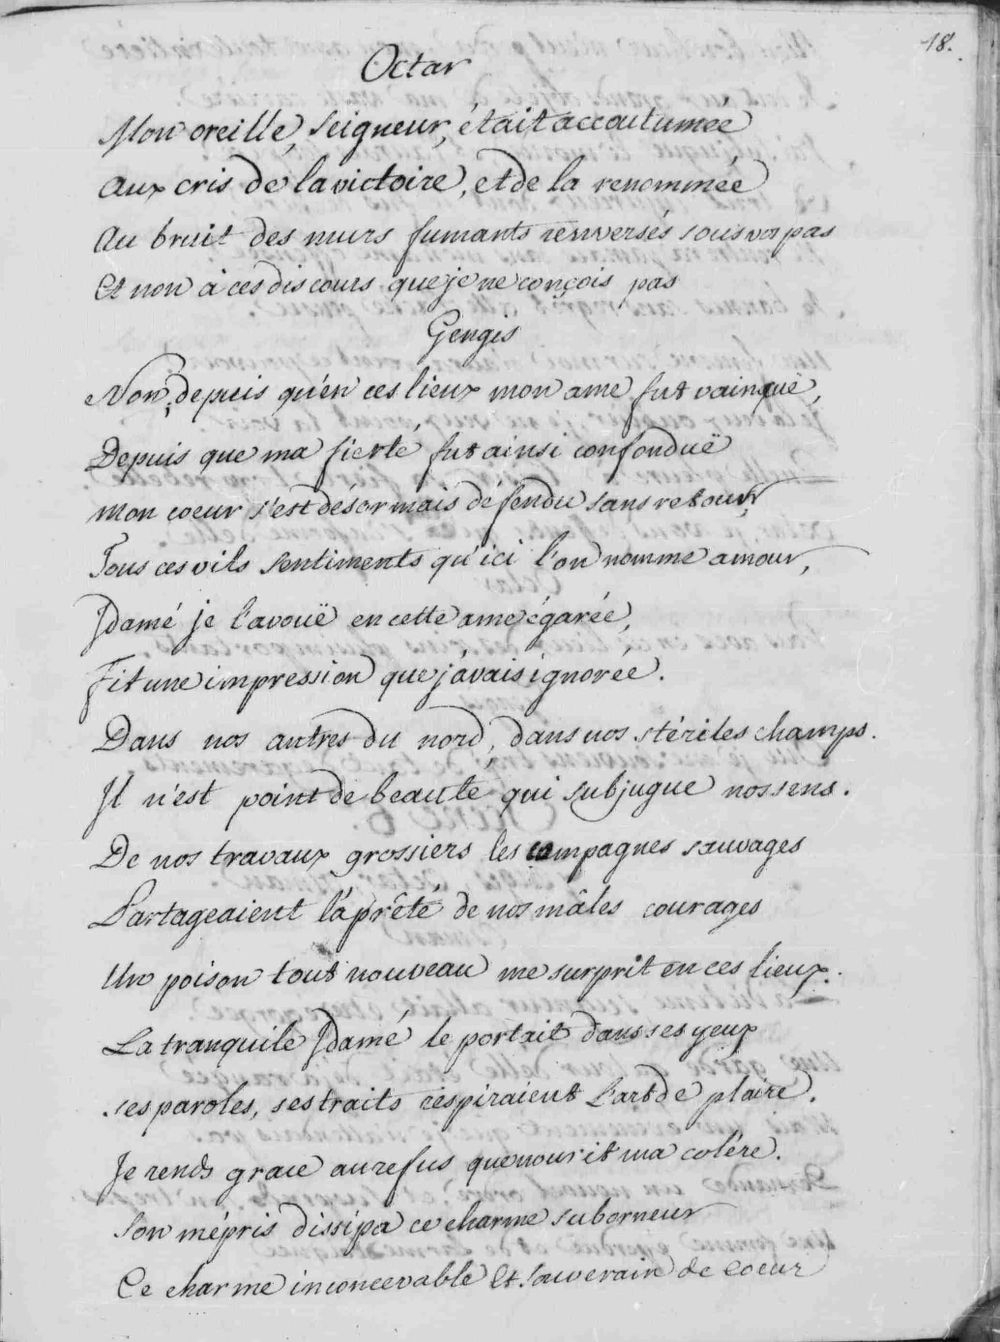 18.
Octar
Mon oreille, Seigneur, était accoutumée
Aux cris de la victoire, et de la renommée
Au bruit des murs fumants renversés sous vos pas
Et non à ces discours que je ne conçois pas
Gengis
Non, depuis qu'en ces lieux mon ame fut vainque,
Depuis que ma fierté fut ainsi confonduë
Mon coeur s'est désormais défendu sans retour,
Tous ces vils sentiments qu'ici l'on nomme amour,
Idamé je l'avouë en cette ame égarée,
Fit une impression que j'avais ignorée.
Dans nos antres du nord, dans nos stériles champs.
Il n'est point de beauté qui subjugue nos sens.
De nos travaux grossiers les compagnes sauvages
Partageaient l'âpreté de nos mâles courages
Un poison tout nouveau me surprit en ces lieux.
La tranquile Idamé le portait dans ses yeux
ses paroles, ses traits respiraient l'art de plaire.
Je rends grace au refus que nourit ma colére.
Son mépris dissipa ce charme suborneur
Ce charme inconcevable et souverain de coeur